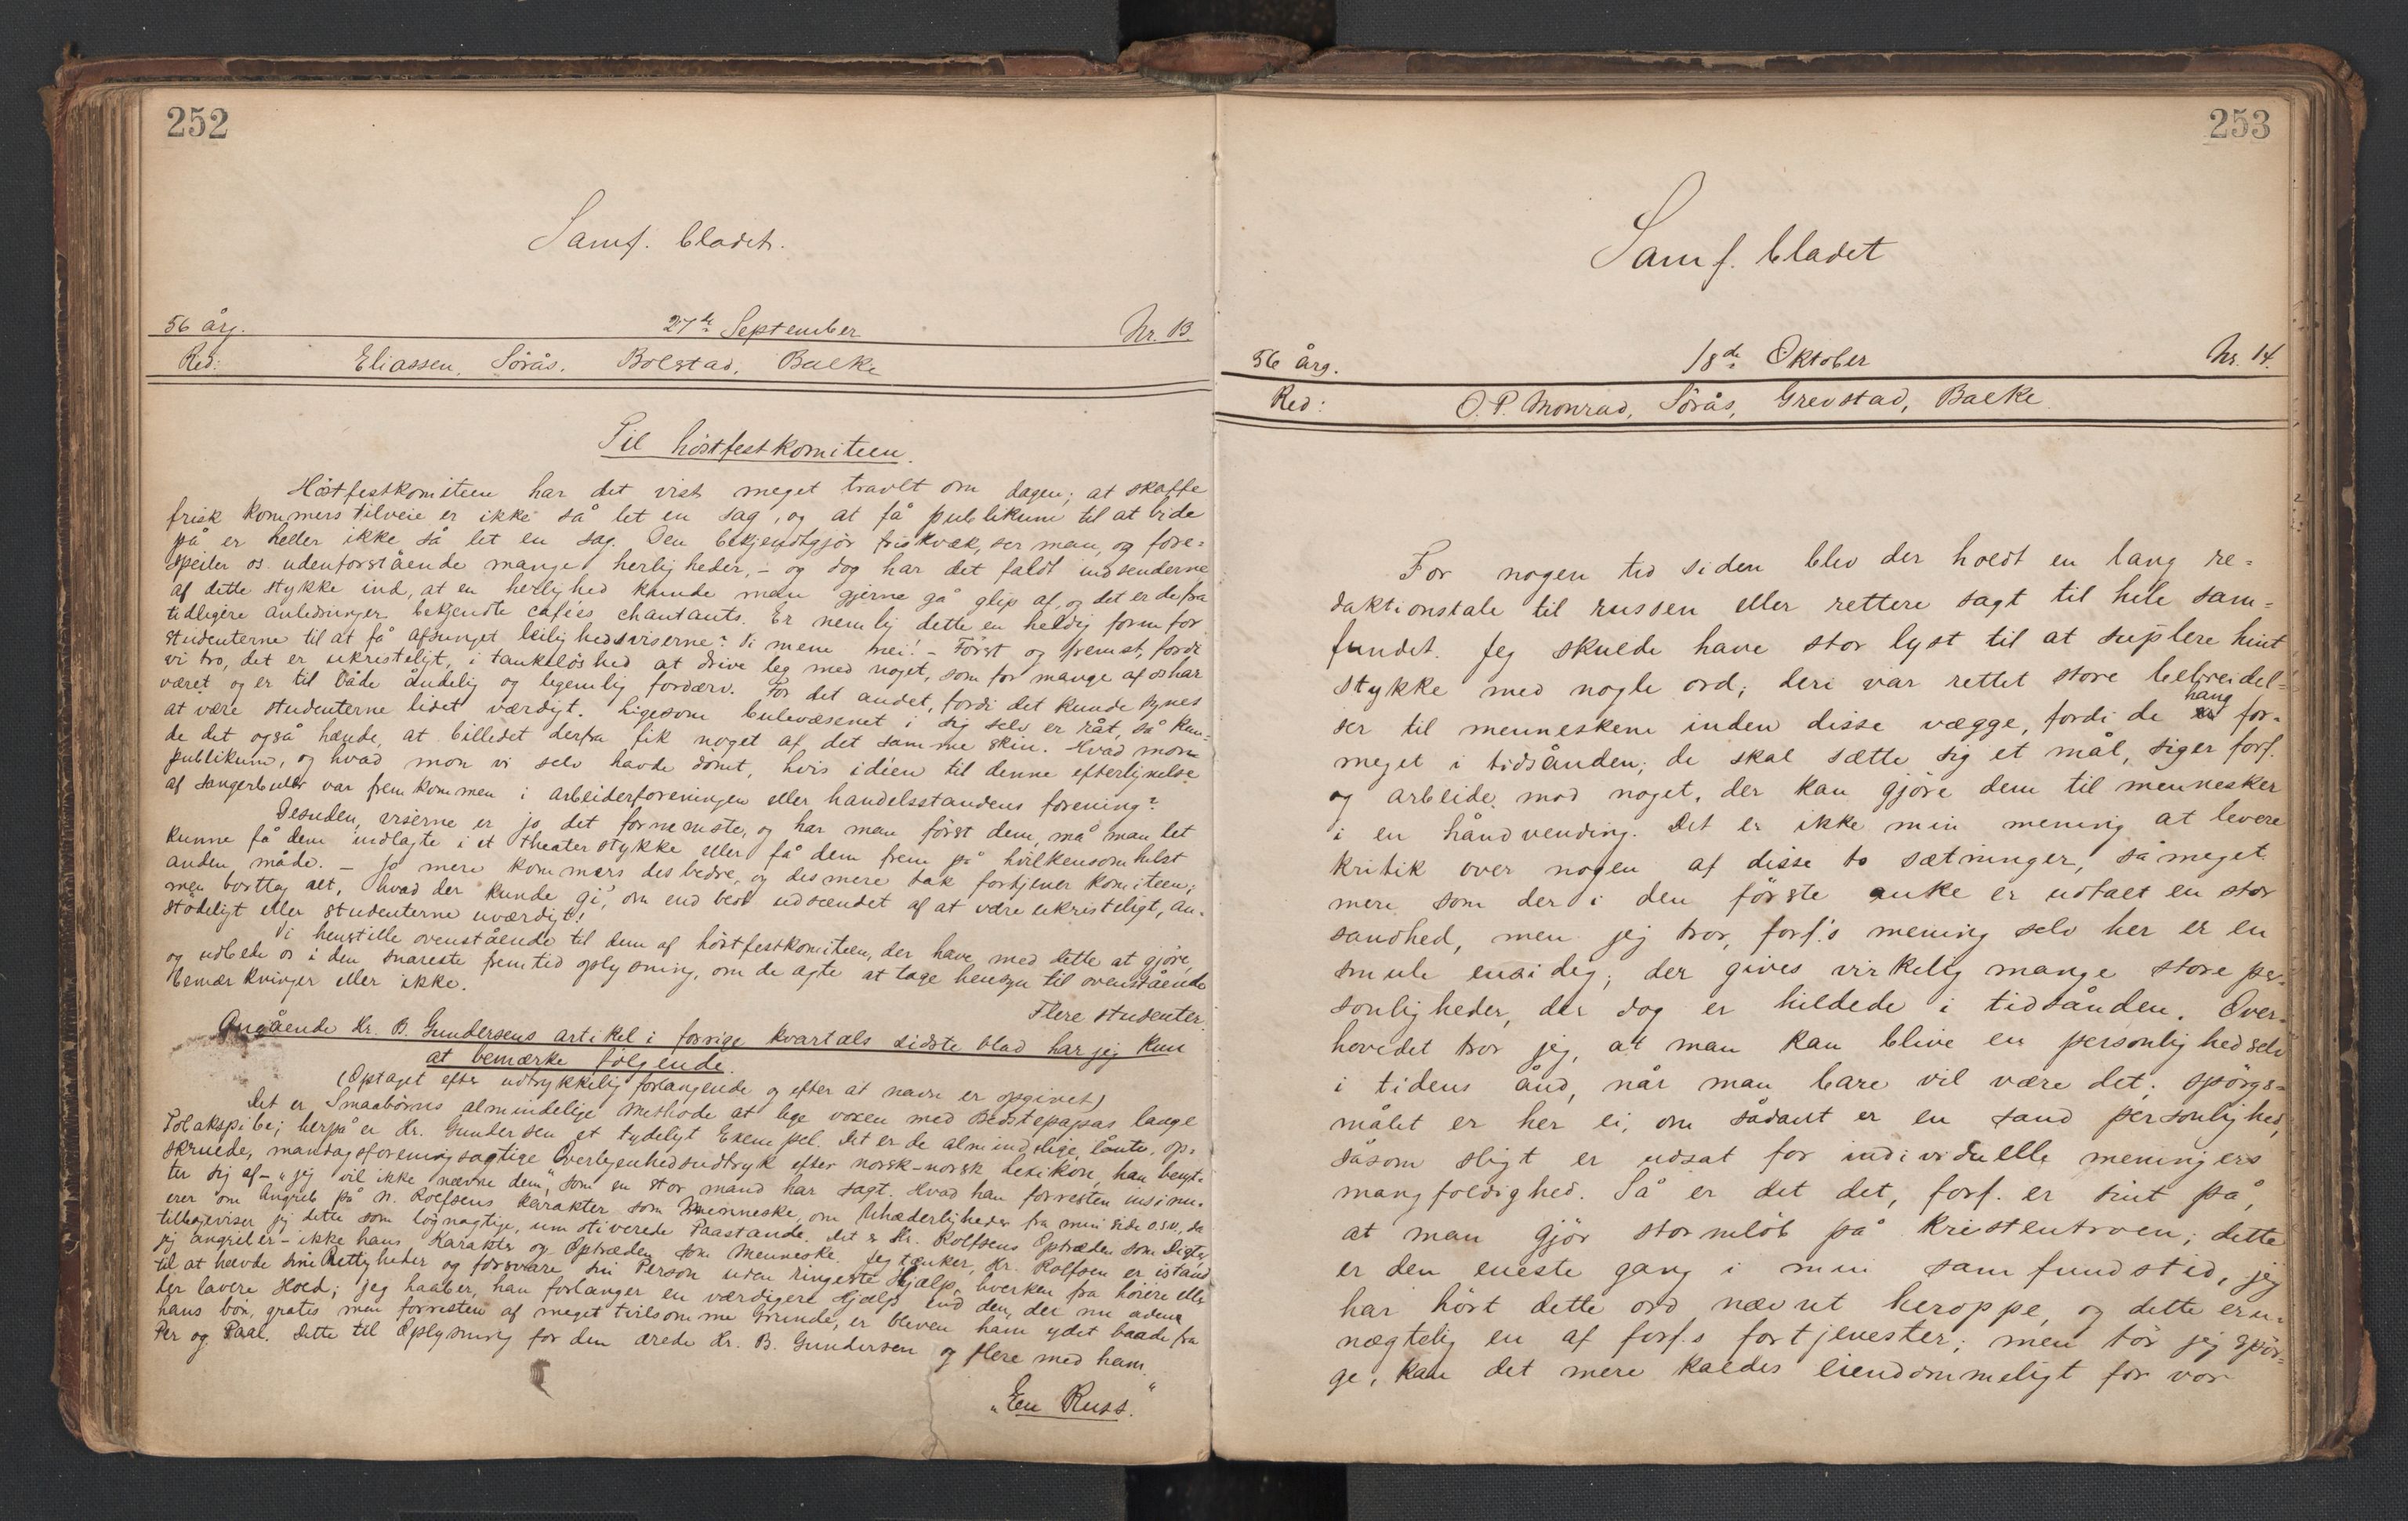 252
Samf. bladet.
56 årg. 27de September Nr. 13.
Red: Eliassen, Sörås, Bolstad, Balke
Til höstfestkomiteen.
Höstfestkomiteen har det vist meget travlt om dagen; at skaffe
frisk kommers tilveie er ikke så let en sag, og at få publikum til at bide
på er heller ikke så let en sag. Den bekjendtgjör friskvæk, ser man, og fore=
speiler os udenforstående mange herligheder, – og dog har det faldt indsenderne
af dette stykke ind, at en herlighed kunde man gjerne gå glip af, og det er de fra
tidligere anledninger bekjendte cafées chantants. Er nemlig dette en heldig form for
studenterne til at få afsunget leilighedsviserne? Vi mene nei! – Först og fremst, fordi
vi tro, det er ukristeligt, i tanklöshed at drive leg med noget, som for mange af os har
været og er til både åndelig og legemlig fordærv. For det andet, fordi det kunde synes
at være studenterne lidet værdigt. Ligesom bulevæsenet i sig selv er råt, så kun-
de det også hænde, at billedet derfra fik noget af det samme skin. Hvad mon
publikum, og hvad mon vi selv havde dömt, hvis idéen til denne efterlignelse
af sangerbuler var fremkommen i arbeiderforeningen eller handelsstandens forening?
Desuden, viserne er jo det fornemste, og har man först dem, må man let
kunne få dem indlagte i et theaterstykke eller få dem frem på hvilkensomhelst
anden måde. – Jo mere kommers des bedre, og desmere tak fortjener komiteen;
men borttag alt, hvad der kunde gi', om end blot udseendet af at være ukristeligt, an-
stödeligt eller studenterne uværdigt!
Vi henstille ovenstående til dem af höstfestkomiteen, der have med dette at gjöre,
og udbede os i den snareste fremtid oplysning, om de agte at tage hensyn til ovenstående
bemærkninger eller ikke.
Flere studenter.
Angående Hr. B. Gundersens artikel i forrige kvartals sidste blad har jeg kun
at bemærke fölgende.
(Optaget efter udtrykkelig forlangende og efter at navn er opgivet)
Det er Smaabörns almindelige Methode at lege voxen med Bedstepapas lange
Tobakspibe; herpå er Hr. Gundersen et tydeligt Exempel. Det er de almindelige, lånte, op-
skruede, mandagsforeningsagtige Overlegenhedsudtryk efter norsk-norsk Lexikon, han benyt-
ter sig af – "jeg vil ikke nævne dem", som en stor mand har sagt. Hvad han forresten insinu-
erer om Angreb på N. Rolfsens Karakter som Menneske, om Uhæderligheder fra min Side o.s.v., da
tilbageviser jeg dette som lögnagtige, umotiverede Paastande. Det er Hr. Rolfsens Optræden som Digter,
jeg angriber – ikke hans Karakter og Optræden som Menneske. Jeg tænker, Hr. Rolfsen er istand
til at hævde sine Rettigheder og forsvare sin Person uden ringeste Hjælp, hverken fra höiere eller
lavere Hold; jeg haaber, han forlanger en værdigere Hjælp end den, der nu uden
hans bön, gratis men forresten af meget tvilsomme Grunde, er bleven ham ydet baade fra
Per og Paal. Dette til Oplysning for den ærede Hr. B. Gundersen og flere med ham.
"En Russ."
253
Samf. bladet
56 årg. 18de Oktober Nr. 14.
Red: O. P. Monrad, Sörås, Grevstad, Balke
For nogen tid siden blev der holdt en lang re=
daktionstale til russen eller rettere sagt til hele sam=
fundet. Jeg skulde have stor lyst til at suplere hint
stykke med nogle ord; deri var rettet store bebreidel=
ser til menneskene inden disse vægge, fordi de hang for-
meget i tidsånden; de skal sætte sig et mål, siger forf.
og arbeide mod noget, der kan gjöre dem til mennesker
i en håndvending. Det er ikke min mening at levere
kritik over nogen af disse to sætninger, såmeget
mere som der i den förste anke er udtalt en stor
sandhed, men jeg tror, forf.'s mening selv her er en
smule ensidig; der gives virkelig mange store per-
sonligheder, der dog er hildede i tidsånden. Over-
hovedet tror jeg, at man kan blive en personlighed selv
i tidens ånd, når man bare vil være det; spörgs=
målet er her ei, om sådant er en sand personlighed,
såsom sligt er udsat for individuelle meningers
mangfoldighed. Så er det det, forf. er sint på,
at man gjör stormlöb på kristentroen; dette
er den eneste gang i min samfundstid, jeg
har hört dette ord nævnt heroppe, og dette er u-
nægtelig en af forf.s fortjenester; men tör jeg spör=
ge, kan det mere kaldes eiendommeligt for vor